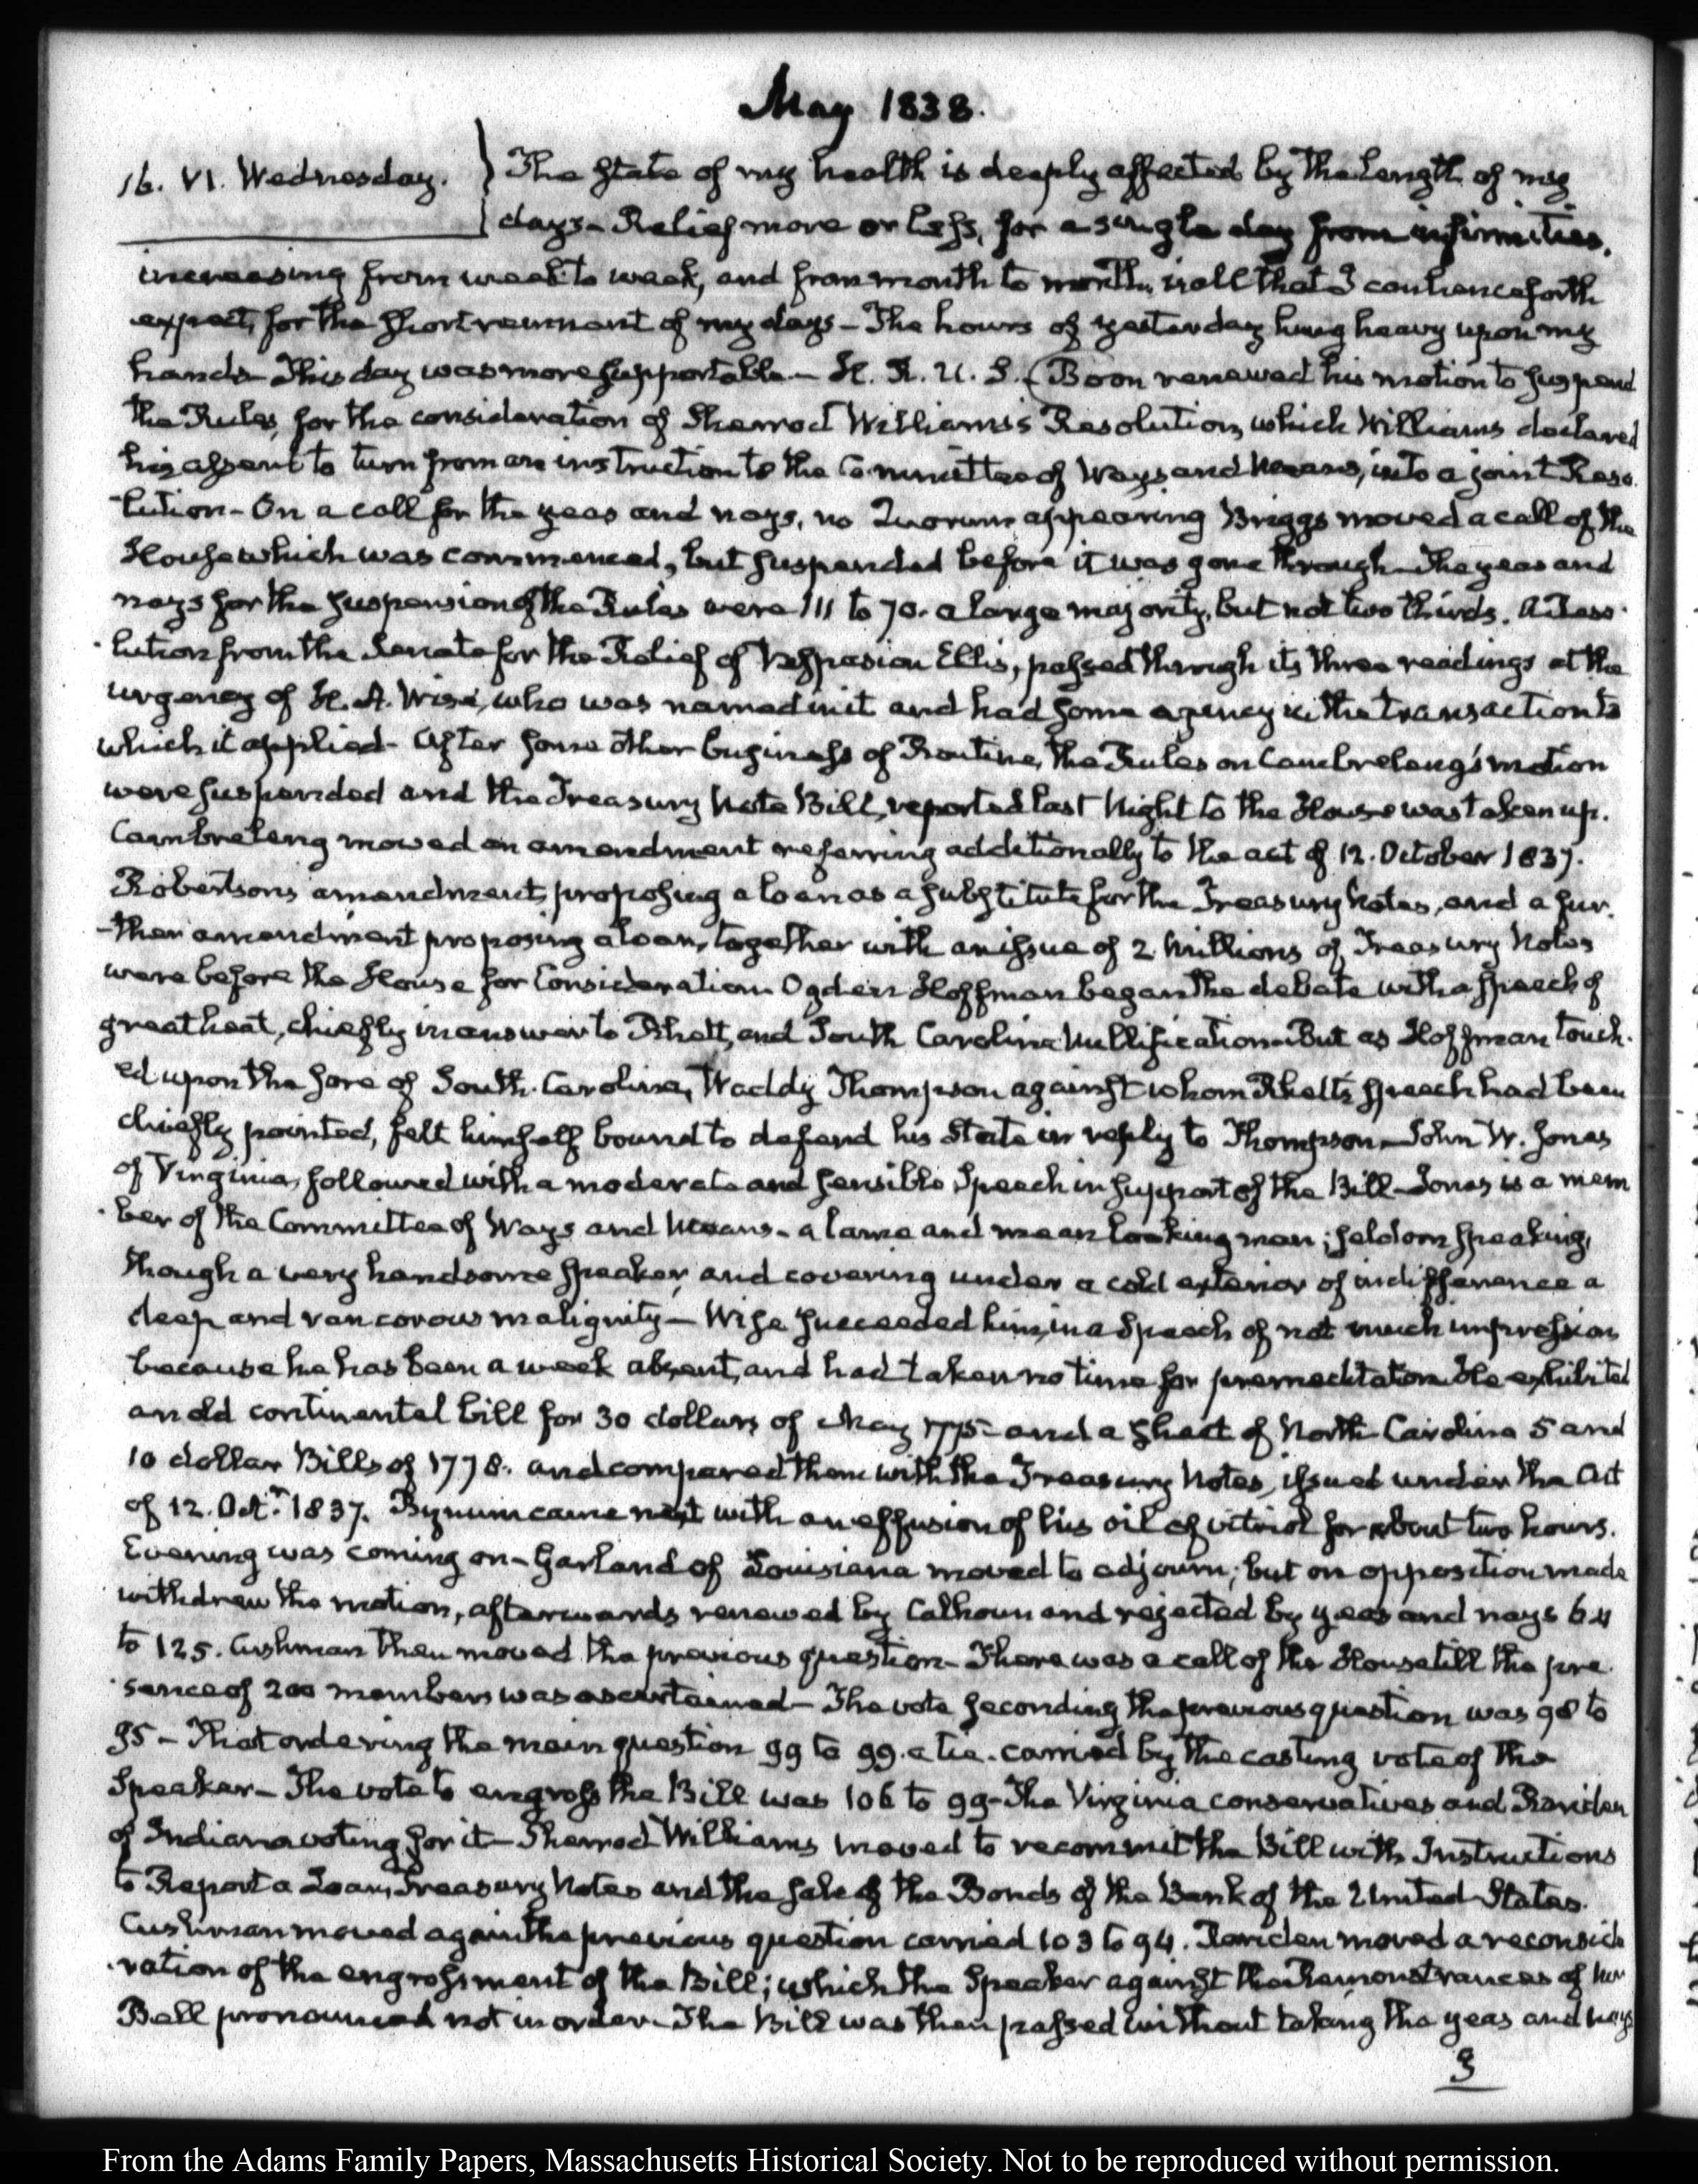 May 1838.
16. VI. Wednesday. } The State of my health is deeply affected by the length of my
days – Relief more or less, for a single day from infirmities,
increasing from week to week, and from month to month, is all that I can henceforth
expect, for the short remnant of my days – The hours of yesterday hung heavy upon my
hands – This day was more supportable – H. R. U. S. (Boon renewed his motion to suspend
the Rules, for the consideration of Sherrod Williams's Resolution, which Williams declared
his assent to turn from an instruction to the Committee of Ways and Means, into a joint Reso-
-lution – On a call for the yeas and nays, no Quorum appearing Briggs moved a call of the
House which was commenced, but suspended before it was gone through – The yeas and
nays for the suspension of the Rules were 111 to 70. a large majority, but not two thirds. A Reso-
-lution from the Senate for the Relief of Vespasian Ellis, passed through its three readings at the
urgency of H. A. Wise, who was named in it and had some agency in the transaction to
which it applied – After some other business of Routine, the Rules on Cambreleng's motion
were suspended and the Treasury Note Bill, reported last Night to the House was taken up.
Cambreleng moved an amendment referring additionally to the act of 12. October 1837.
Robertson's amendment, proposing a loan as a substitute for the Treasury Notes, and a fur-
-ther amendment proposing a loan, together with an issue of 2 Millions of Treasury Notes
were before the House for Consideration. Ogden Hoffman began the debate with a speech of
great heat, chiefly in answer to Rhett, and South Carolina Nullification – But as Hoffman touch-
ed upon the sore of South-Carolina, Waddy Thompson against whom Rhett's speech had been
chiefly pointed, felt himself bound to defend his State in reply to Thompson – John W. Jones
of Virginia, followed with a moderate and sensible Speech in support of the Bill – Jones is a mem
-ber of the Committee of Ways and Means – a lame and mean looking man; seldom speaking,
though a very handsome speaker, and covering under a cold exterior of indifference a
deep and rancorous malignity – Wise succeeded him, in a Speech of not much impression
because he has been a week absent, and had taken no time for premeditation. He exhibited
an old continental bill for 30 dollars of May 1775 – and a sheet of North Carolina 5 and
10 dollar Bills of 1778. and compared them with the Treasury Notes, issued under the Act
of 12. Octr. 1837. Bynum came next with an effusion of his oil of vitriol for about two hours.
Evening was coming on – Garland of Louisiana moved to adjourn; but on opposition made
withdrew the motion, afterwards renewed by Calhoun and rejected by yeas and nays 64
to 125. Cushman then moved the previous question – There was a call of the House till the pre-
-sence of 200 members was ascertained – The vote seconding the previous question was 98 to
95 – That ordering the main question 99 to 99. a tie. carried by the casting vote of the
Speaker – The vote to engross the Bill was 106 to 99 – The Virginia conservatives and Rariden
of Indiana voting for it – Sherrod Williams moved to recommit the Bill with Instructions
to Report a Loan, Treasury Notes and the sale of the Bonds of the Bank of the United States.
Cushman moved again the previous question carried 103 to 94. Rariden moved a reconside
-ration of the engrossment of the Bill; which the Speaker against the Remonstrances of
Bell pronounced not in order – The Bill was then passed without taking the yeas and nays
3
From the Adams Family Papers, Massachusetts Historical Society. Not to be reproduced without permission.